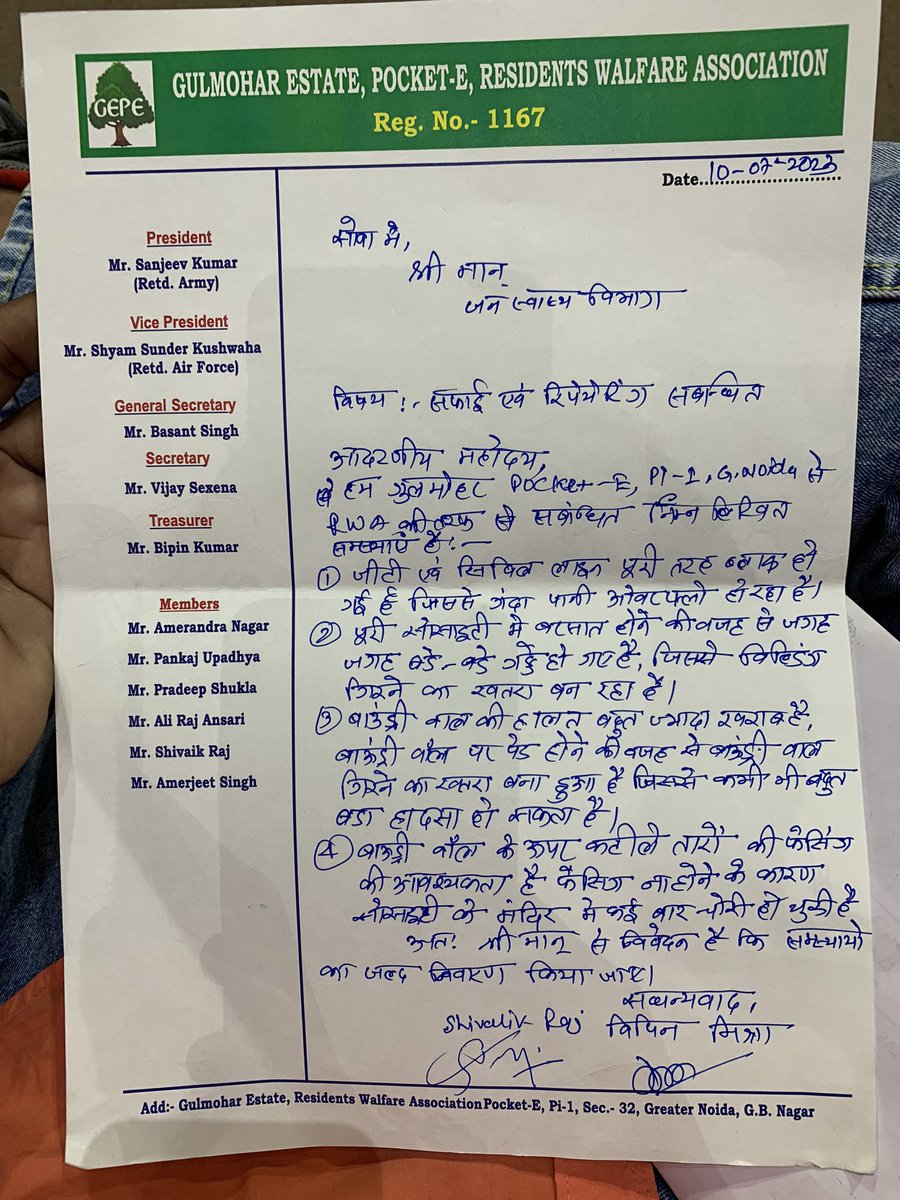 GEPE
GULMOHAR ESTATE, POCKET-E, RESIDENTS WALFARE ASSOCIATION
Reg. No.- 1167
Date..10-07-2023
President
Mr. Sanjeev Kumar
(Retd. Army)
Vice President
Mr. Shyam Sunder Kushwaha
(Retd. Air Force)
General Secretary
Mr. Basant Singh
Secretary
Mr. Vijay Sexena
Treasurer
Mr. Bipin Kumar
Members
Mr. Amerandra Nagar
Mr. Pankaj Upadhya
Mr. Pradeep Shukla
Mr. Ali Raj Ansari
Mr. Shivaik Raj
Mr. Amerjeet Singh
सेवा मे,
श्री मान्
जन स्वाथ्य विभाग
विषय :- सफाई एवं रिपेयेरिंग सबन्धित
आदरणीय महोदय,
हम गुलमोहर Pocket-E, PI-1, G. Noida से
RWA की तरफ से सबंधित निम्न लिखित
समस्याएं है:-
① जीटी एवं सिविल लाइन पूरी तरह ब्लाक हो
गई है जिससे गंदा पानी ओवरफ्लो हो रहा है।
② पूरी सोसाइटी मे बरसात होने की वजह से जगह
जगह बडे-बडे गड्ढे हो गए है, जिससे बिल्डिंग
गिरने का खतरा बन रहा है।
③ बाउंड्री वाल की हालत बहुत ज्यादा खराब है,
बाऊंड्री वॉल पर पेड होने की वजह से बाऊंड्री वाल
गिरने का खतरा बना हुआ है जिससे कभी भी बहुत
बडा हादसा हो सकता है।
④ बाऊंड्री वॉल के ऊपर कटीले तारों की फेसिंग
की आवश्यकता है फेंसिग ना होने के कारण
सोसाइटी के मंदिर मे कई बार चोरी हो चुकी है
अतः श्री मान् से निवेदन है कि समस्यायो
का जल्द निवारण किया जाए।
सधन्यवाद,
Shivalik Raj विपिन मिश्रा
Add:- Gulmohar Estate, Residents Walfare Association Pocket-E, Pi-1, Sec.- 32, Greater Noida, G.B. Nagar